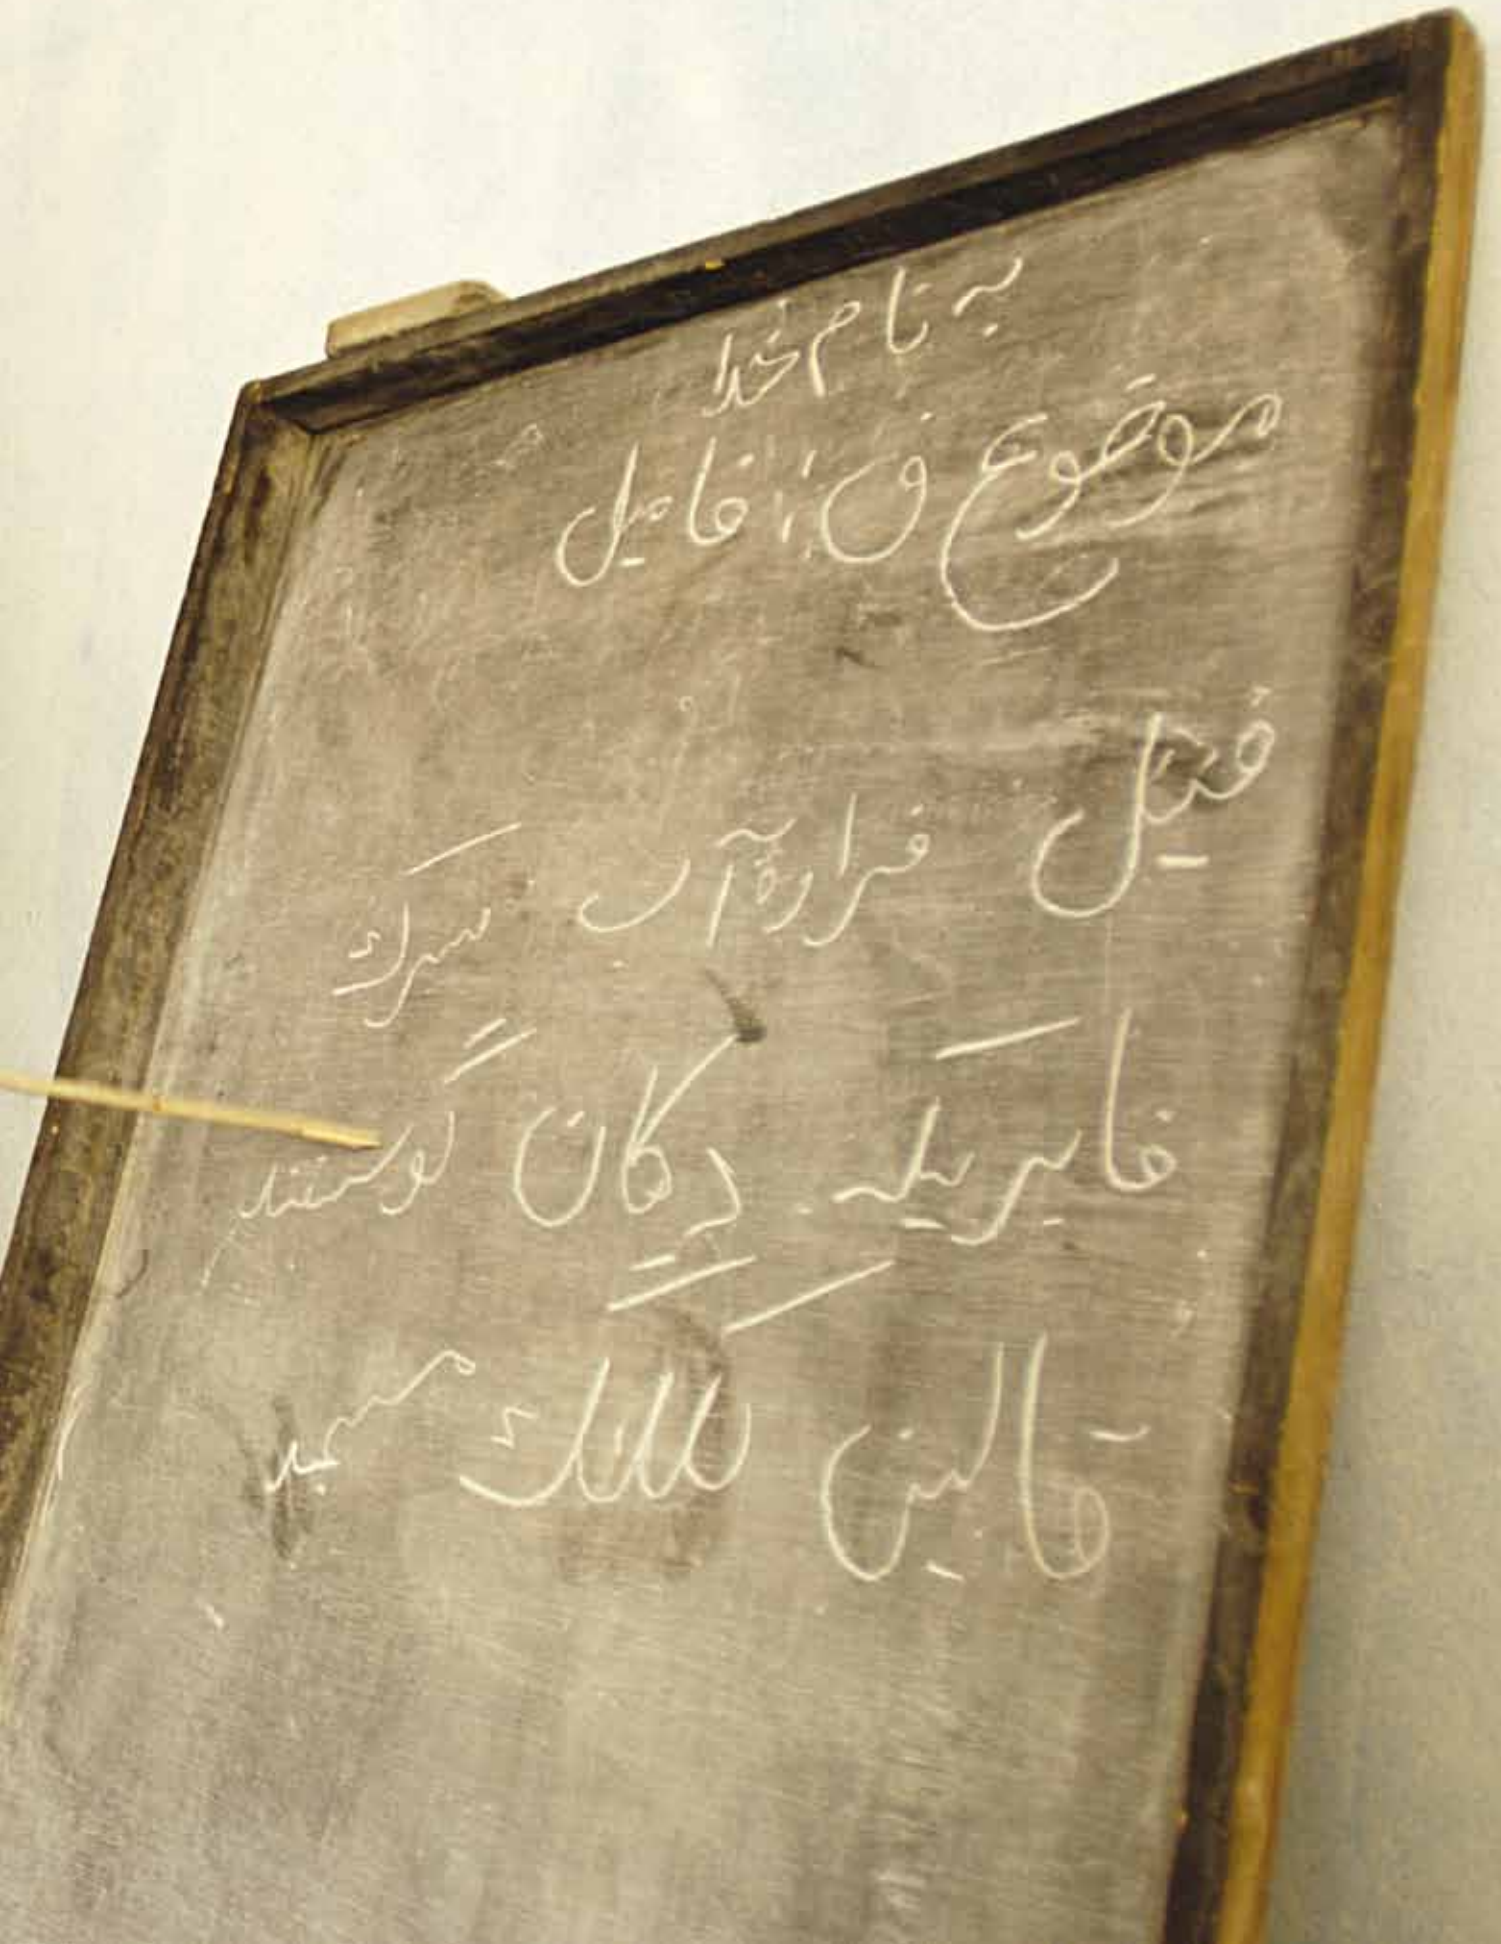 به نام خدا
موضوع ف: فامیل
فتیل فراره آب سرک
فابریکه دکان گوسفند
قالین کلکک مسجد